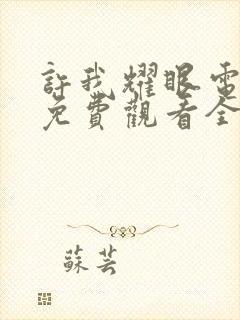 許我耀眼電
免費觀看全
蘇芸